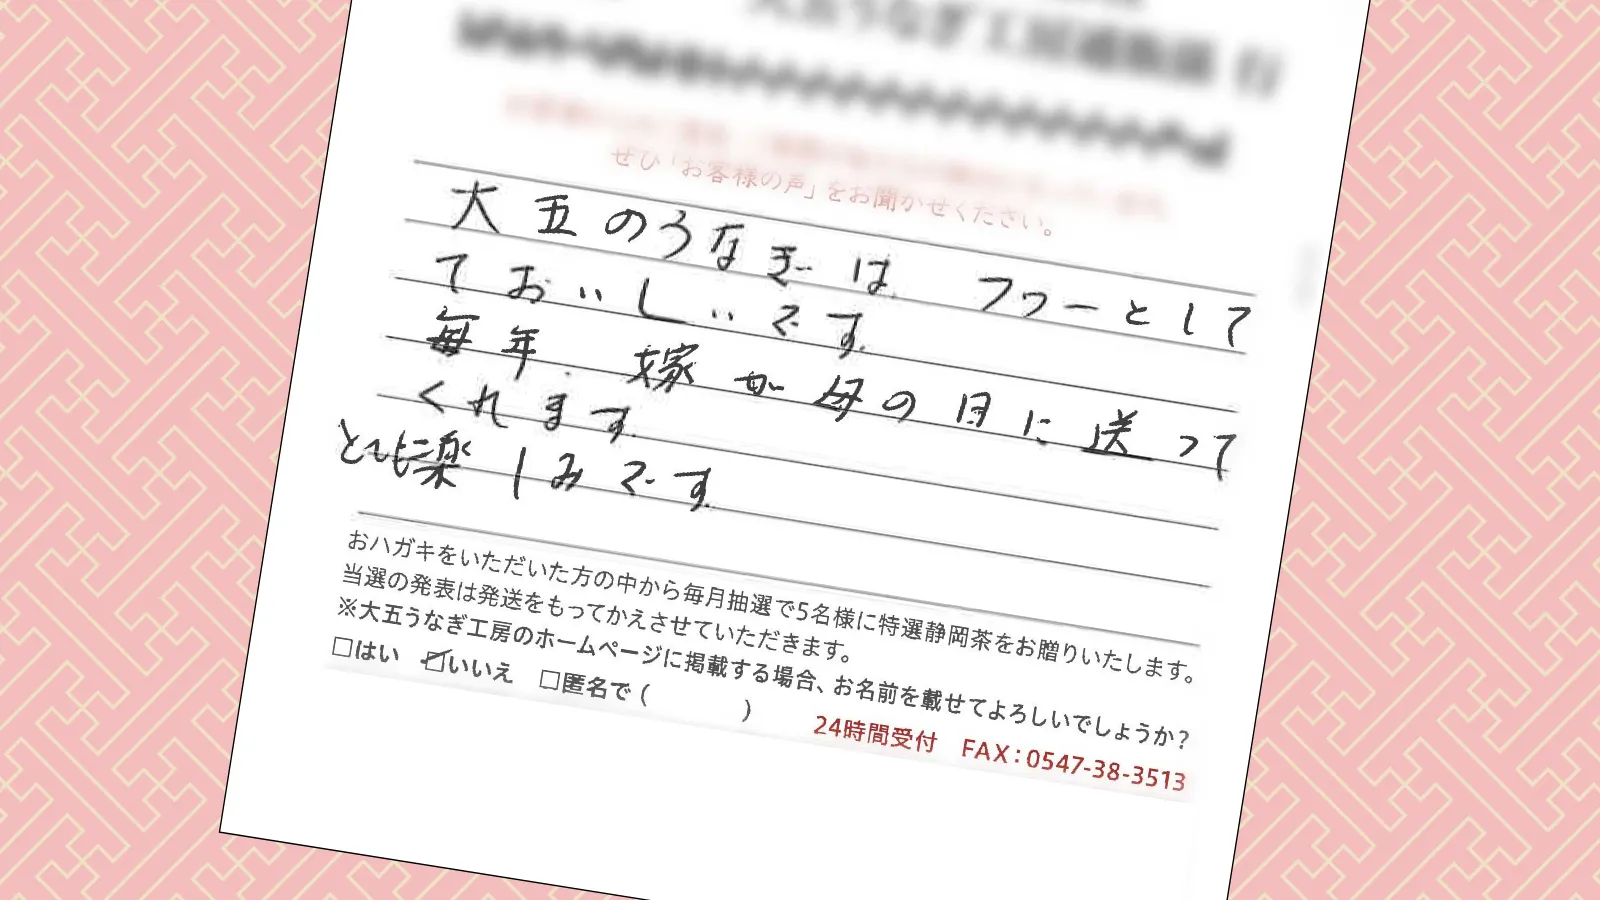 大五うなぎ工房通販係 行
ぜひ「お客様の声」をお聞かせください。
大五のうなぎは、フワーとして
ておいしいです。
毎年、嫁が母の日に送って
くれます。
とても楽しみです。
おハガキをいただいた方の中から毎月抽選で5名様に特選静岡茶をお贈りいたします。
当選の発表は発送をもってかえさせていただきます。
※大五うなぎ工房のホームページに掲載する場合、お名前を載せてよろしいでしょうか?
□はい ☑いいえ □匿名で( )
24時間受付 FAX:0547-38-3513